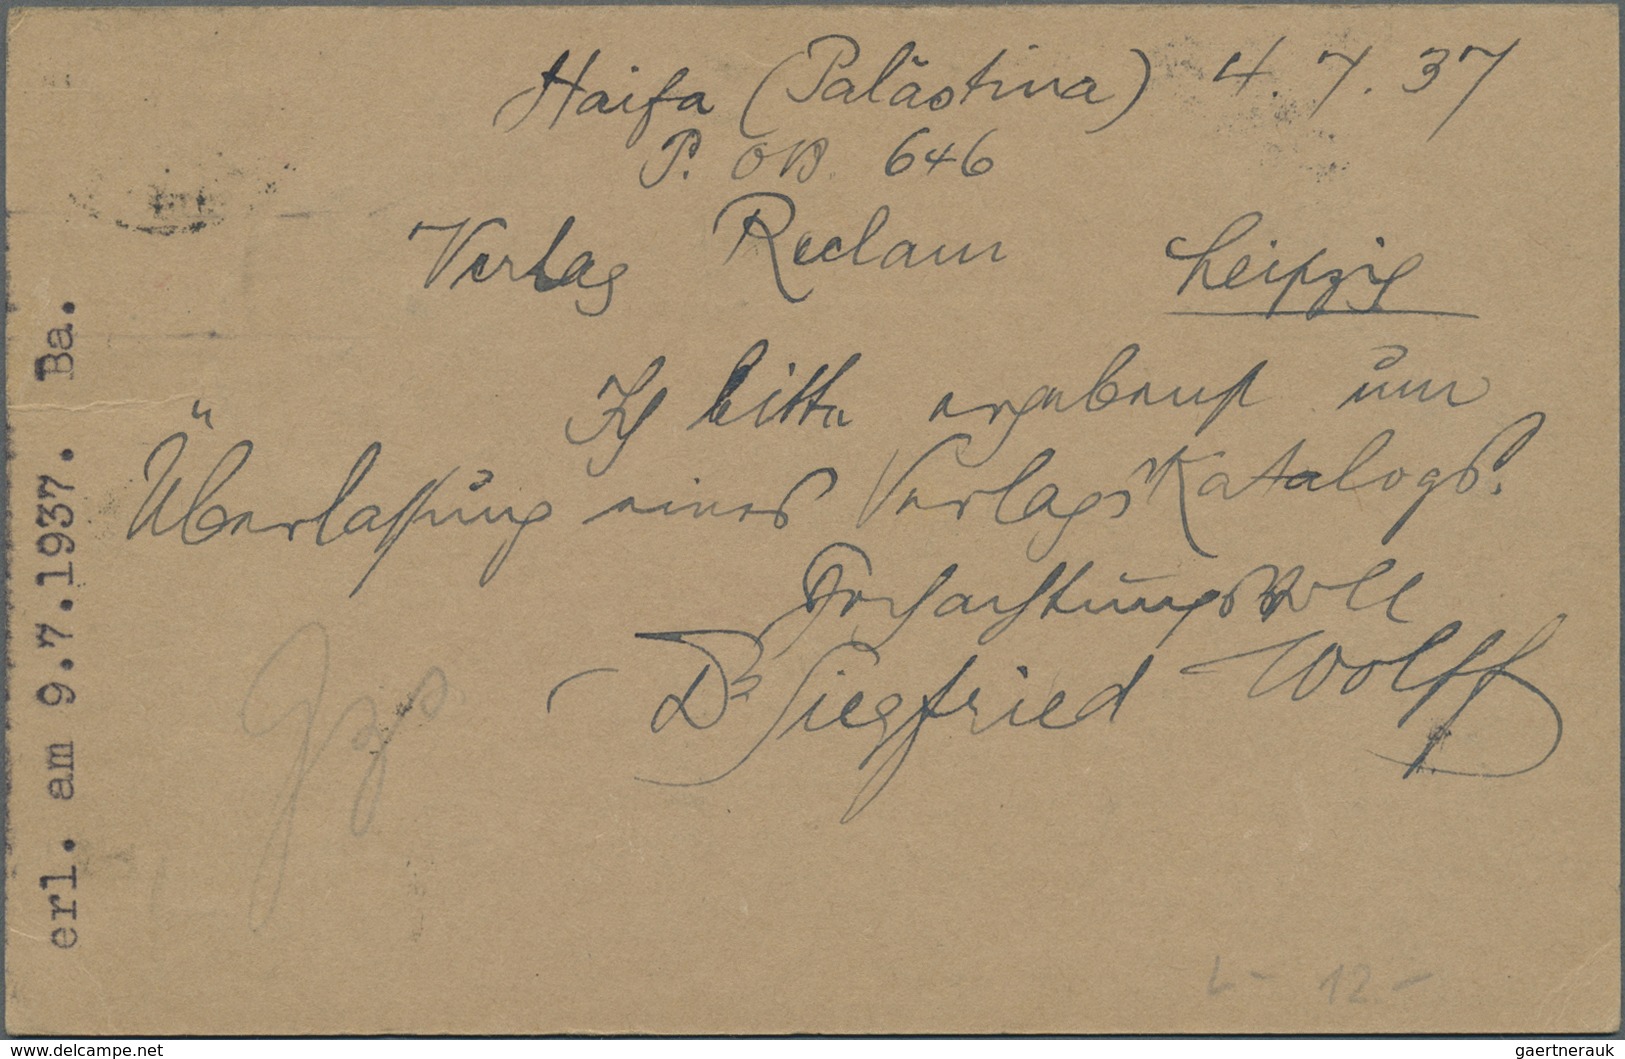 Haifa (Palästina) 4.7.37
P. OB. 646
Verlag Reclam Leipzig
Ich bitte ergebenst um
Überlassung eines Verlagskatalogs.
Hochachtungsvoll
Dr Siegfried Wolff
erl. am 9.7.1937. Ba.
12.-
www.delcampe.net
gaertnerauk